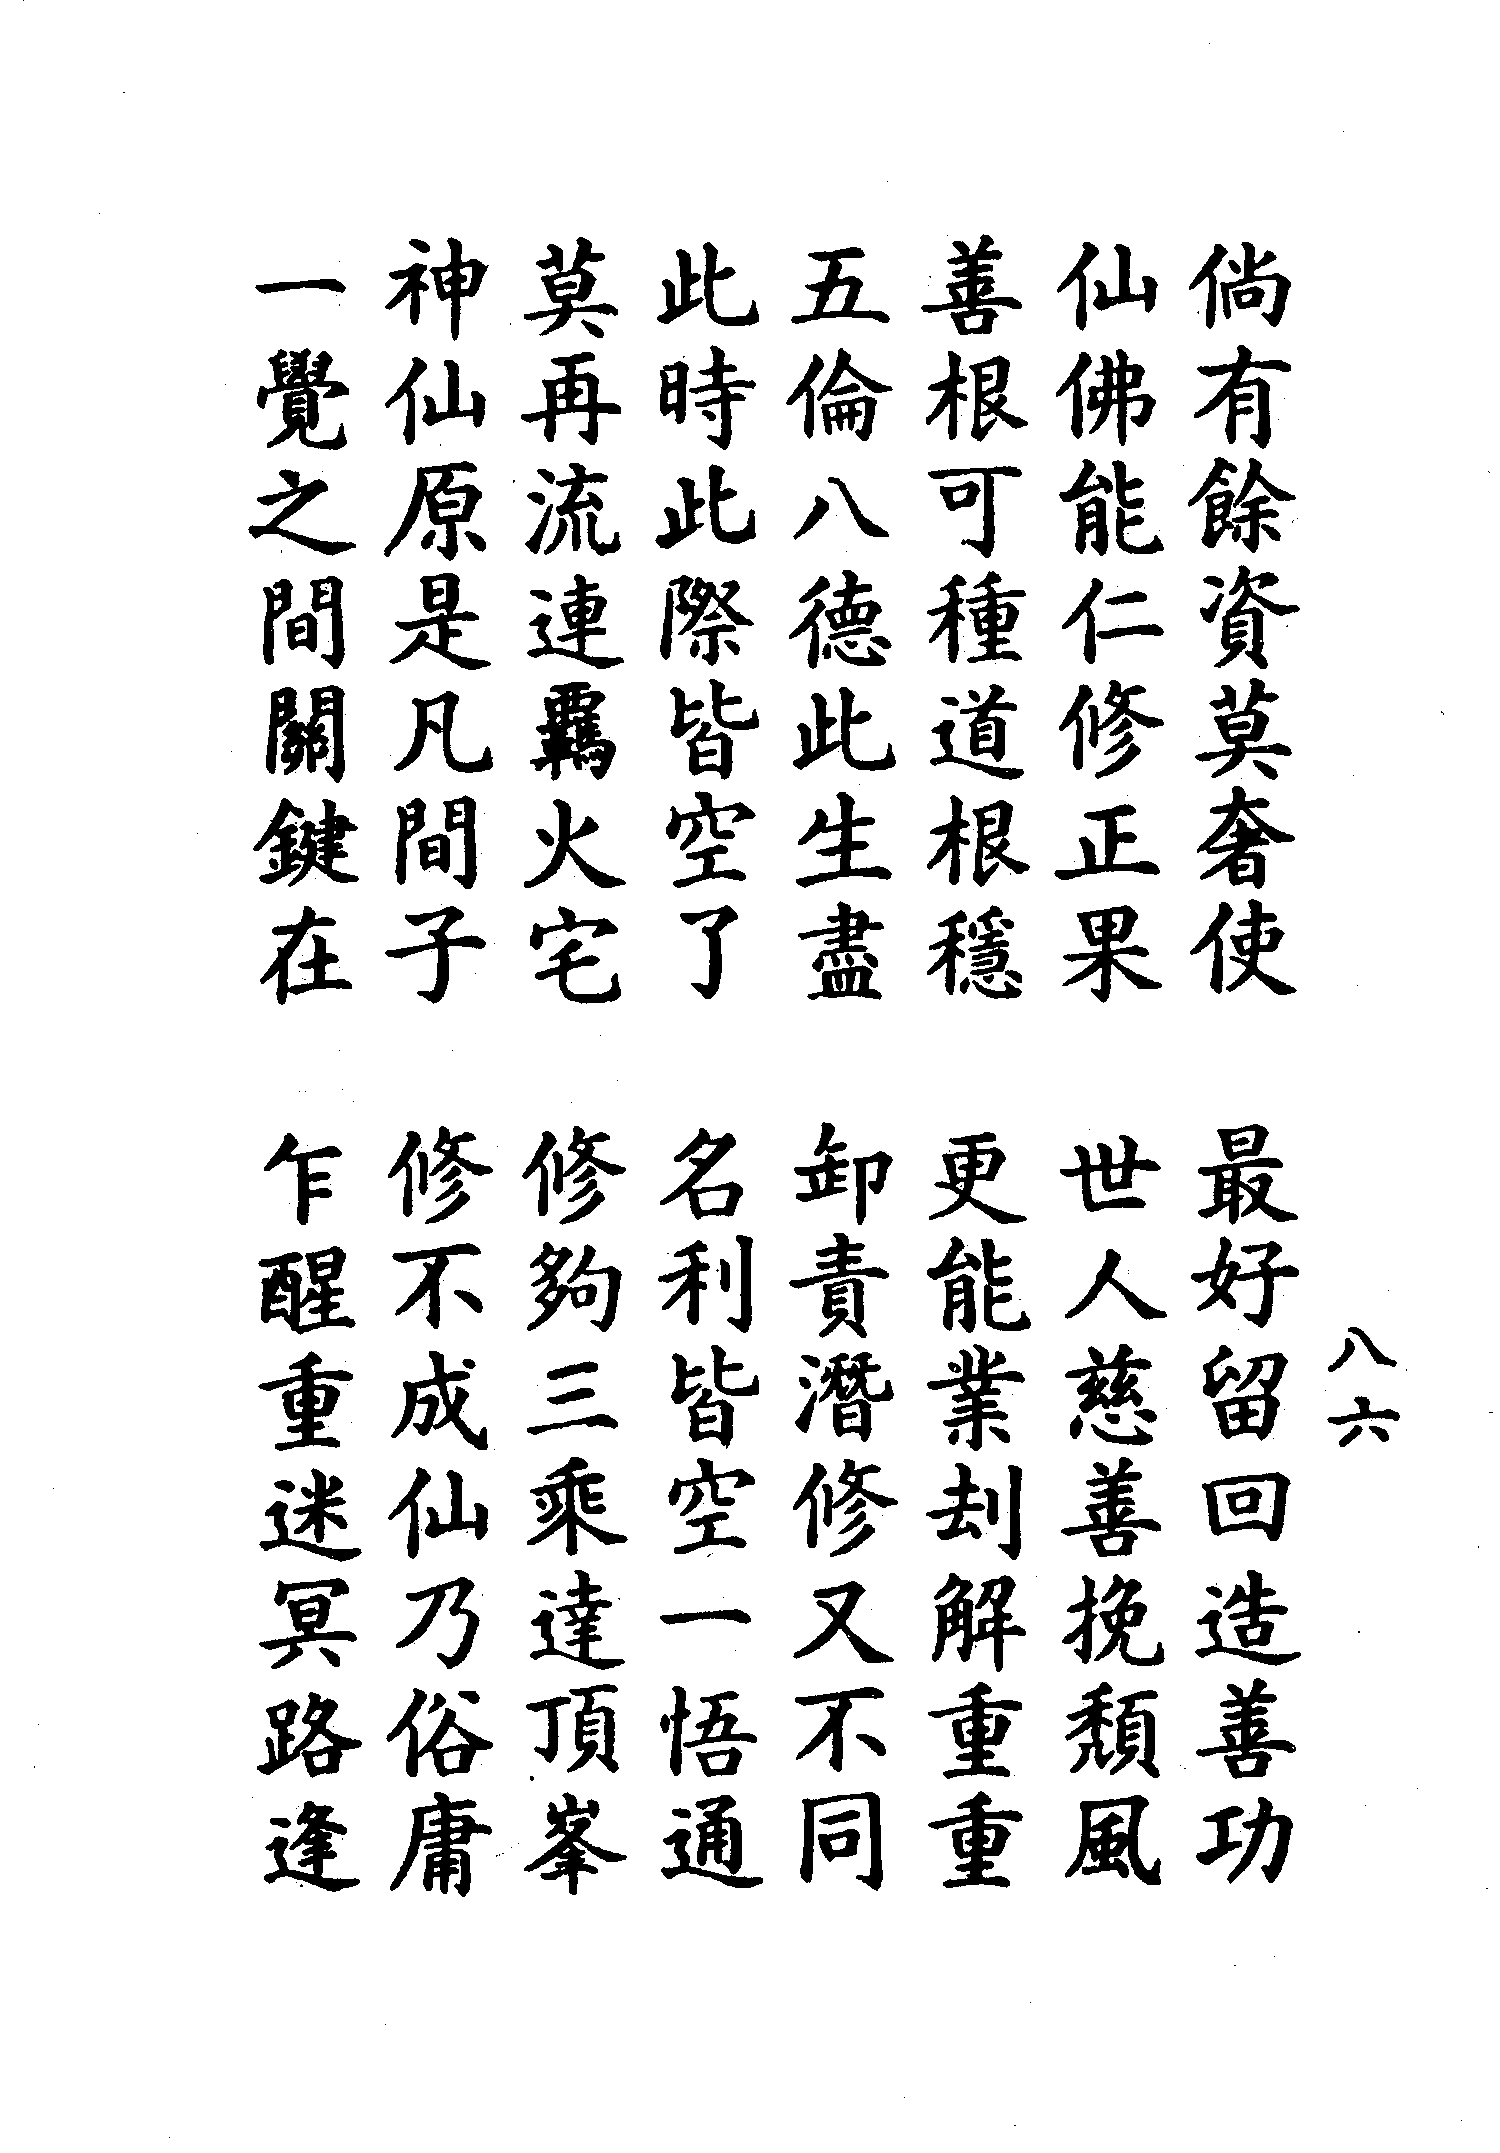 八六
倘有餘資莫奢使　最好留回造善功
仙佛能仁修正果　世人慈善挽頹風
善根可種道根穩　更能業刦解重重
五倫八德此生盡　卸責潛修又不同
此時此際皆空了　名利皆空一悟通
莫再流連羈火宅　修夠三乘達頂峯
神仙原是凡間子　修不成仙乃俗庸
一覺之間關鍵在　乍醒重迷冥路逢